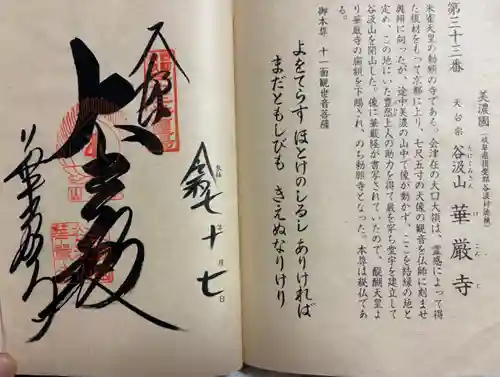 第三十三番
美濃国(岐阜県揖斐郡谷汲村徳積)
天台宗 谷汲山 華厳寺
たにぐみさん けごんじ
朱雀天皇の勅願の寺である。会津在の大口大領は、霊感によって得
た榎材をもって京都に上り、七尺五寸の大像の観音を仏師に刻ませ
奥州に向ったが、途中美濃の山中で像が動かず、ここを結縁の地と
定め、この地にいた豊然上人の助力を得て巌を穿ち堂宇を建立して
谷汲山を開山した。像に華厳経が書写されていたので、醍醐天皇よ
り華厳寺の扁額を下賜され、のち勅願寺となった。本尊は秘仏であ
る。
御本尊 十一面観世音菩薩
よをてらす ほとけのしるし ありければ
まだともしびも きえぬなりけり
奉拝
令和 七 年 十 月 七 日
大悲殿
谷汲山
華厳寺